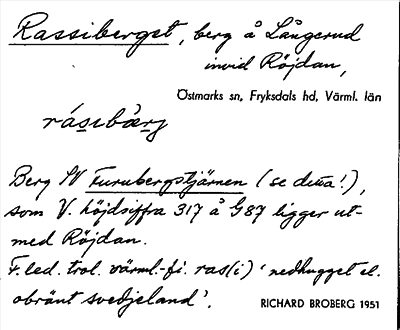 Rassiberget, berg å Långerud
invid Röjdan,
Östmarks sn, Fryksdals hd, Värml. län
rásıbærj
Berg SV Furubergstjärnen (se detta!),
som V. höjdsiffra 317 å G87 ligger ut-
med Röjdan.
F.led. trol. värml.-fi. ras(i) 'nedhugget el.
obränt svedjeland'.
RICHARD BROBERG 1951